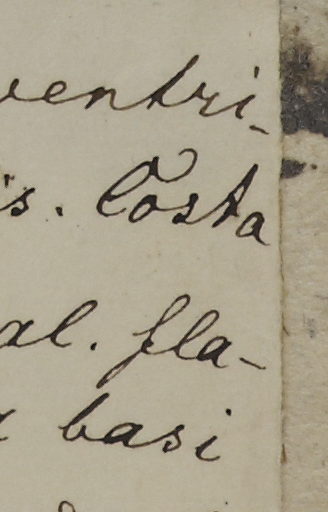 ventri-
is. Costa
al. fla-
basi